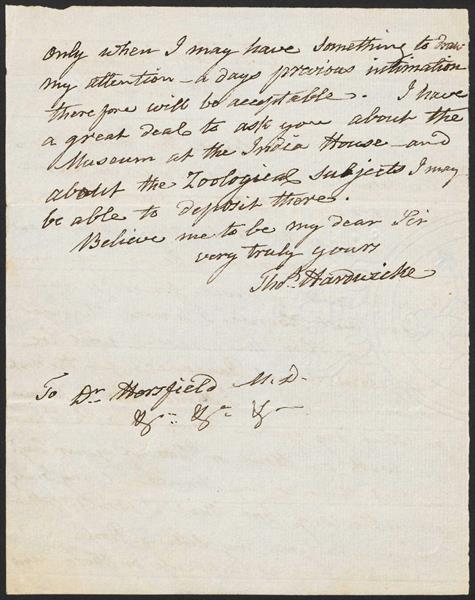 only when I may have something to draw
my attention – a days previous intimation
therefore will be acceptable. I have
a great deal to ask you about the
Museum at the India House – and
about the Zoological subjects I may
be able to deposit there.
Believe me to be my dear Sir
very truly yours
Thos. Hardwicke
To Dr Horsfield M.D.
&c. &c &c